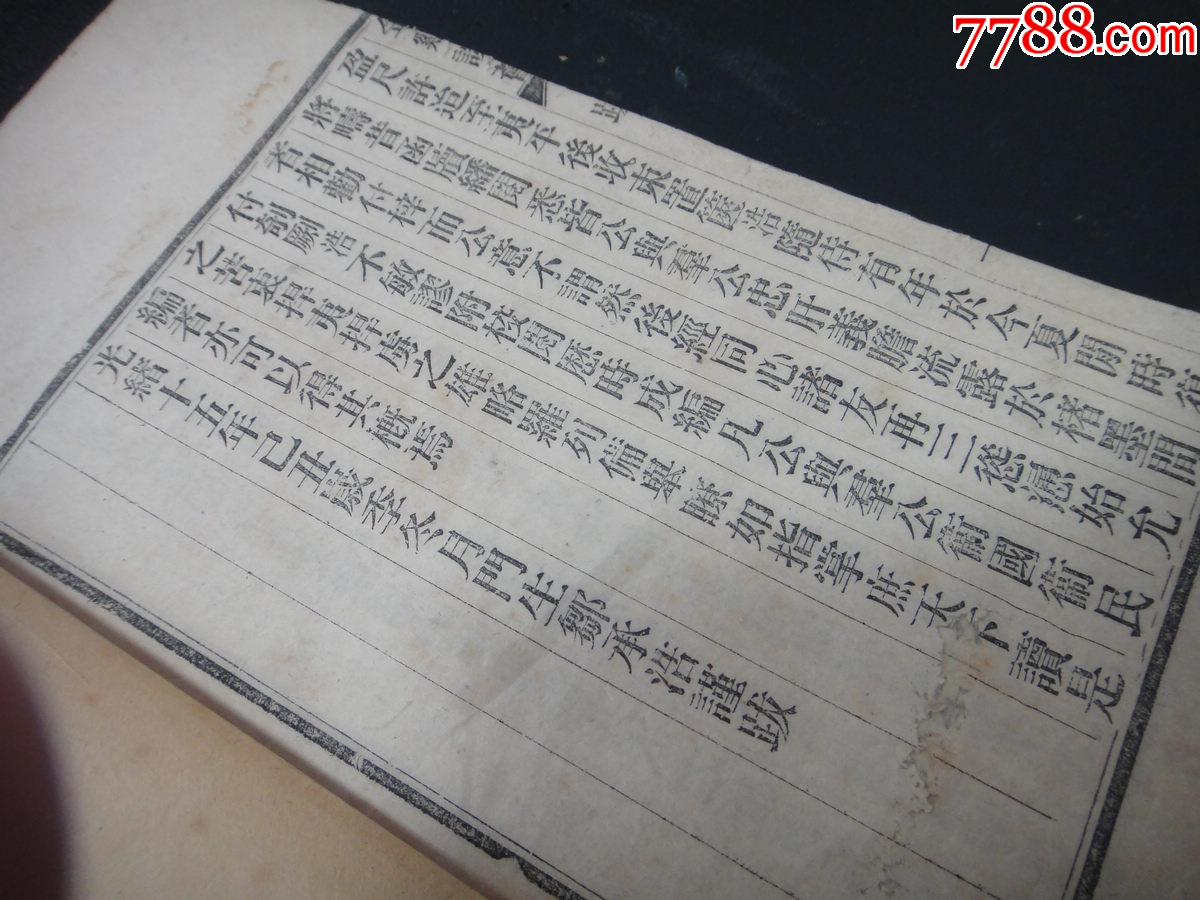 盈尺許迨至夷平後收束置篋浩隨侍有年於今夏閒時復
將疇昔函牘繙閱悉皆公與羣公忠肝義膽流露於楮墨間
者相勸付梓而公意不謂然後經同心諸友再三慫恿始允
付剞劂浩不敏謬附校閱歷時成編凡公與羣公衞國衞民
之苦衷捍夷捍虜之雄略羅列備舉瞭如指掌庶天下讀是
編者亦可以得其概焉
光緒十五年己丑歲季冬月門生鄒承浩謹跋
7788.com